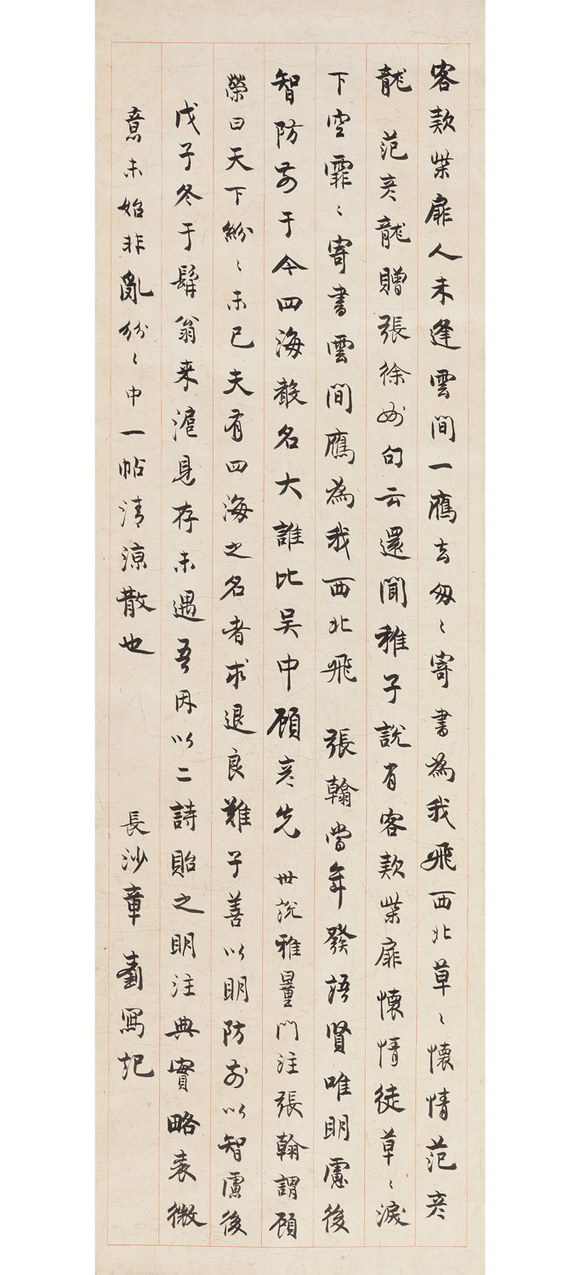 客款柴扉人未逢雲間一鴈去匆〻寄書為我飛西北草〻懷情范彦
龍 范彦龍贈張徐州句云還聞稚子說有客款柴扉懷情徒草〻淚
下空霏〻寄書雲間鴈為我西北飛 張翰當年發語賢唯明慮後
智防前于今四海殸名大誰比吴中顧彦先 世說雅量門注張翰謂顧
榮曰天下紛〻未已夫有四海之名者求退良難子善以明防前以智慮後
戊子冬于髯翁来滬見存未遇吾因以二詩貽之明注典實略表微
意未始非亂紛〻中一帖清涼散也 長沙章士釗寫記